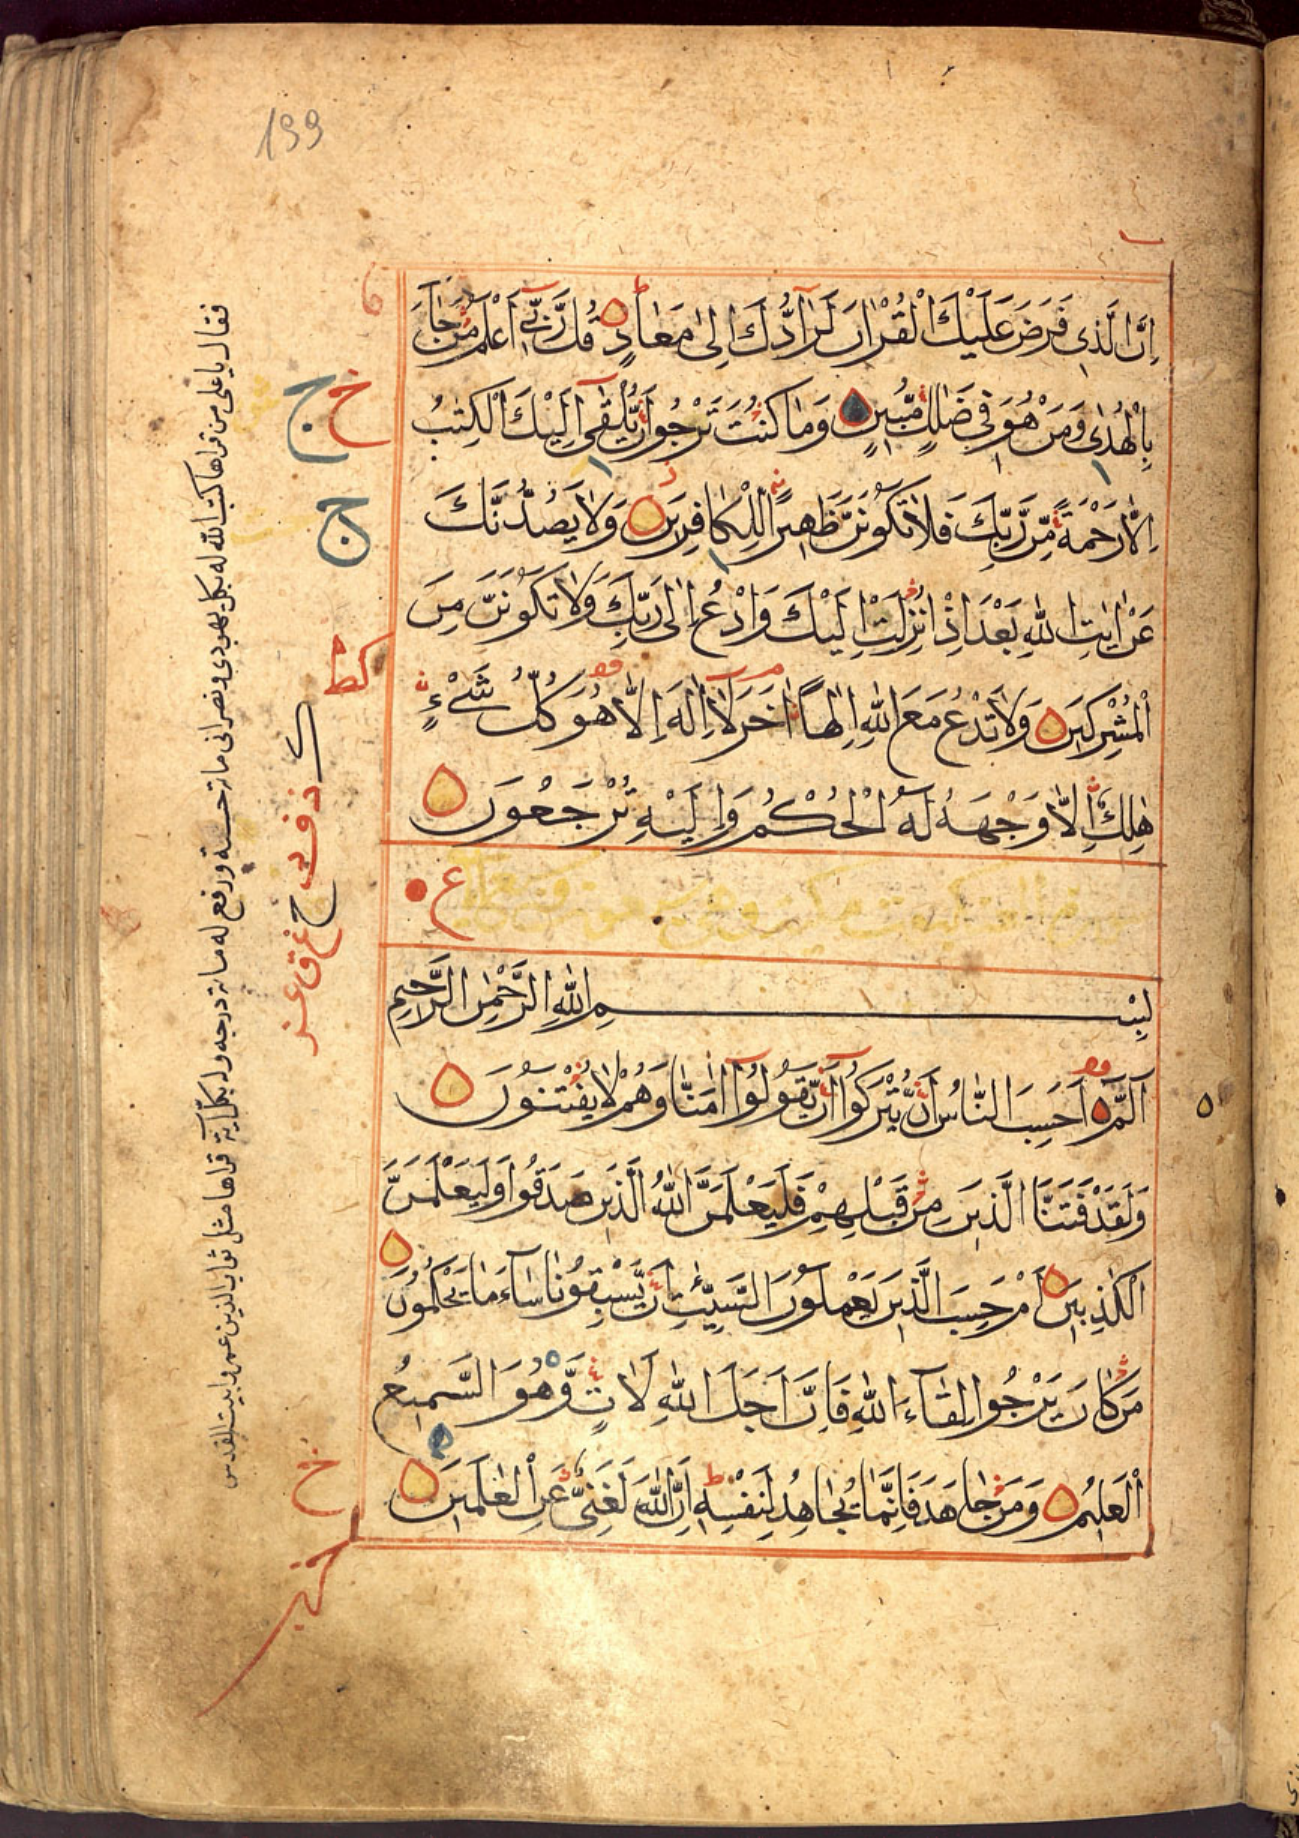 199
اِنَّ الَّذِى فَرَضَ عَلَيْكَ الْقُرْاٰنَ لَرَآدُّكَ اِلٰى مَعَادٍ قُلْ رَّبِّىٓ اَعْلَمُ مَنْ جَآءَ
بِالْهُدٰى وَمَنْ هُوَ فِى ضَلٰلٍ مُّبِينٍ وَمَا كُنْتَ تَرْجُوٓا اَنْ يُّلْقٰىٓ اِلَيْكَ الْكِتٰبُ
اِلَّا رَحْمَةً مِّنْ رَّبِّكَ فَلَا تَكُونَنَّ ظَهِيرًا لِلْكَافِرِينَ وَلَا يَصُدُّنَّكَ
عَنْ اٰيٰتِ اللّٰهِ بَعْدَ اِذْ اُنْزِلَتْ اِلَيْكَ وَادْعُ اِلٰى رَبِّكَ وَلَا تَكُونَنَّ مِنَ
الْمُشْرِكِينَ وَلَا تَدْعُ مَعَ اللّٰهِ اِلٰهًا اٰخَرَ لَآ اِلٰهَ اِلَّا هُوَ كُلُّ شَىْءٍ
هَالِكٌ اِلَّا وَجْهَهُ لَهُ الْحُكْمُ وَاِلَيْهِ تُرْجَعُونَ
ع
بِسْمِ اللّٰهِ الرَّحْمٰنِ الرَّحِيمِ
الٓمّٓ اَحَسِبَ النَّاسُ اَنْ يُّتْرَكُوٓا اَنْ يَّقُولُوٓا اٰمَنَّا وَهُمْ لَا يُفْتَنُونَ
وَلَقَدْ فَتَنَّا الَّذِينَ مِنْ قَبْلِهِمْ فَلَيَعْلَمَنَّ اللّٰهُ الَّذِينَ صَدَقُوا وَلَيَعْلَمَنَّ
الْكٰذِبِينَ اَمْ حَسِبَ الَّذِينَ يَعْمَلُونَ السَّيِّـٔاتِ اَنْ يَّسْبِقُونَا سَآءَ مَا يَحْكُمُونَ
مَنْ كَانَ يَرْجُوا لِقَآءَ اللّٰهِ فَاِنَّ اَجَلَ اللّٰهِ لَاٰتٍ وَّهُوَ السَّمِيعُ
الْعَلِيمُ وَمَنْ جَاهَدَ فَاِنَّمَا يُجَاهِدُ لِنَفْسِهِ اِنَّ اللّٰهَ لَغَنِىٌّ عَنِ الْعٰلَمِينَ
فقال يا على من قراها كتب الله له بكل يهودى ونصرانى مائة حسنة ورفع له مائة درجة وله بكل آية قراها مثل ثواب الذين عمروا بيت المقدس
خ ج
ج
خ